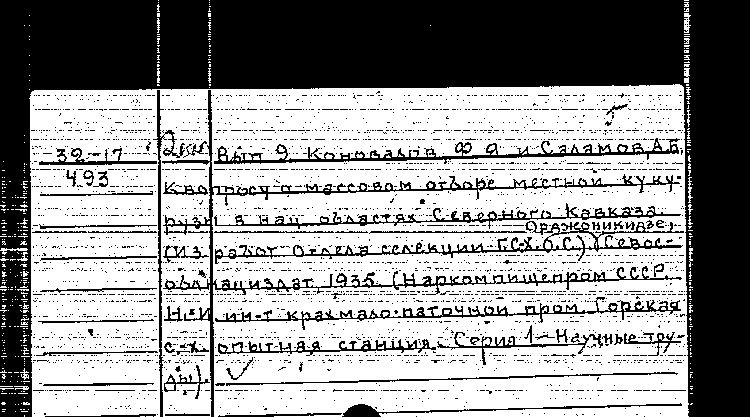 5
32-17 2кн. Вып 9. Коновалов, Ф Я и Саламов, А.Б.
493 К вопросу о массовом отборе местной куку-
рузы в нац. областях Северного Кавказа.
Орджоникидзе,
(Из работ Отдела селекции Г.С.Х.О.С.) Севос-
облнациздат, 1935. (Наркомпищепром СССР.
Н-И ин-т крахмало-паточной пром. Горская
с.-х. опытная станция. Серия 1 - Научные тру-
ды).